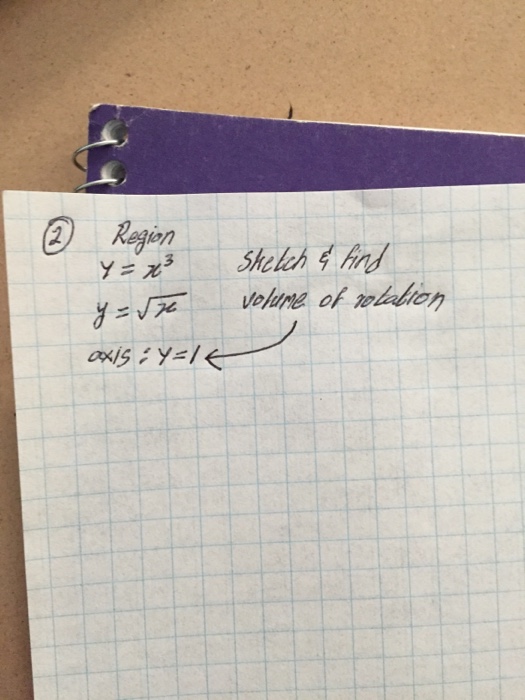 ② Region
Y = x³
y = √x
axis : Y=1
Sketch & find
volume of rotation